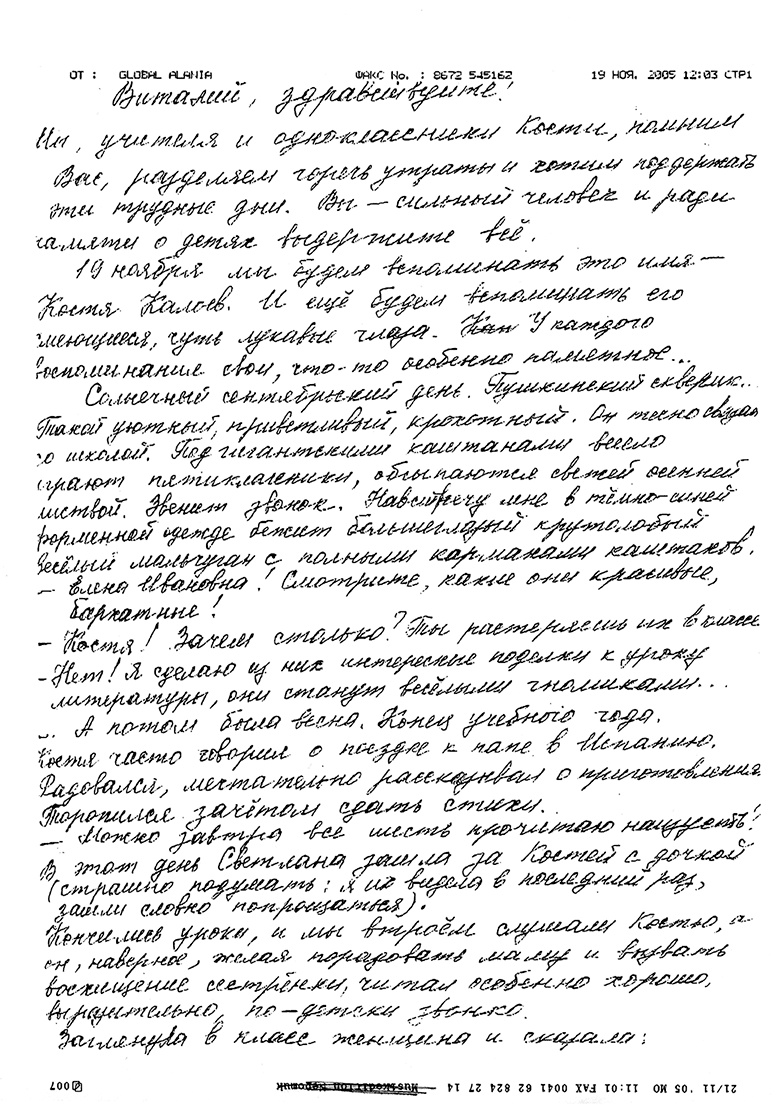 ОТ : GLOBAL ALANIA ФАКС No. : 8672 545162 19 НОЯ. 2005 12:03 СТР1
Виталий, здравствуйте!
Мы, учителя и одноклассники Кости, помним
Вас, разделяем горечь утраты и хотим поддержать
эти трудные дни. Вы — сильный человек и ради
памяти о детях выдержите всё.
19 ноября мы будем вспоминать это имя —
Костя Калоев. И ещё будем вспоминать его
смеющиеся, чуть лукавые глаза. У каждого
воспоминание свои, что-то особенно памятное...
Солнечный сентябрьский день. Пушкинский скверик..
Такой уютный, приветливый, крохотный. Он тесно связан
со школой. Под гигантскими каштанами весело
играют пятиклассники, обсыпаются свежей осенней
листвой. Звенит звонок. Навстречу мне в тёмно-синей
форменной одежде бежит большеглазый крутолобый
весёлый мальчуган с полными карманами каштанов.
– Елена Ивановна! Смотрите, какие они красивые,
бархатные!
– Костя! Зачем столько? Ты растеряешь их в классе
– Нет! Я сделаю из них интересные поделки к уроку
литературы, они станут весёлыми гномиками...
... А потом была весна. Конец учебного года.
Костя часто говорил о поездке к папе в Испанию.
Радовался, мечтательно рассказывал о приготовления
Торопился зачётом сдать стихи.
– Можно завтра все шесть прочитаю наизусть!
В этот день Светлана зашла за Костей с дочкой
(страшно подумать: я их видела в последний раз,
зашли словно попрощаться).
Кончились уроки, и мы втроём слушали Костю, а
он, наверное, желая порадовать маму и вызвать
восхищение сестрёнки, читал особенно хорошо,
выразительно, по-детски звонко.
Заглянула в класс женщина и сказала:
21/11 '05 MO 11:01 FAX 0041 62 824 27 14
007